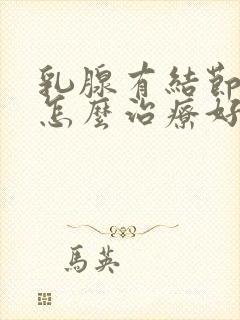 乳腺有結節
怎麼治療好
馬英